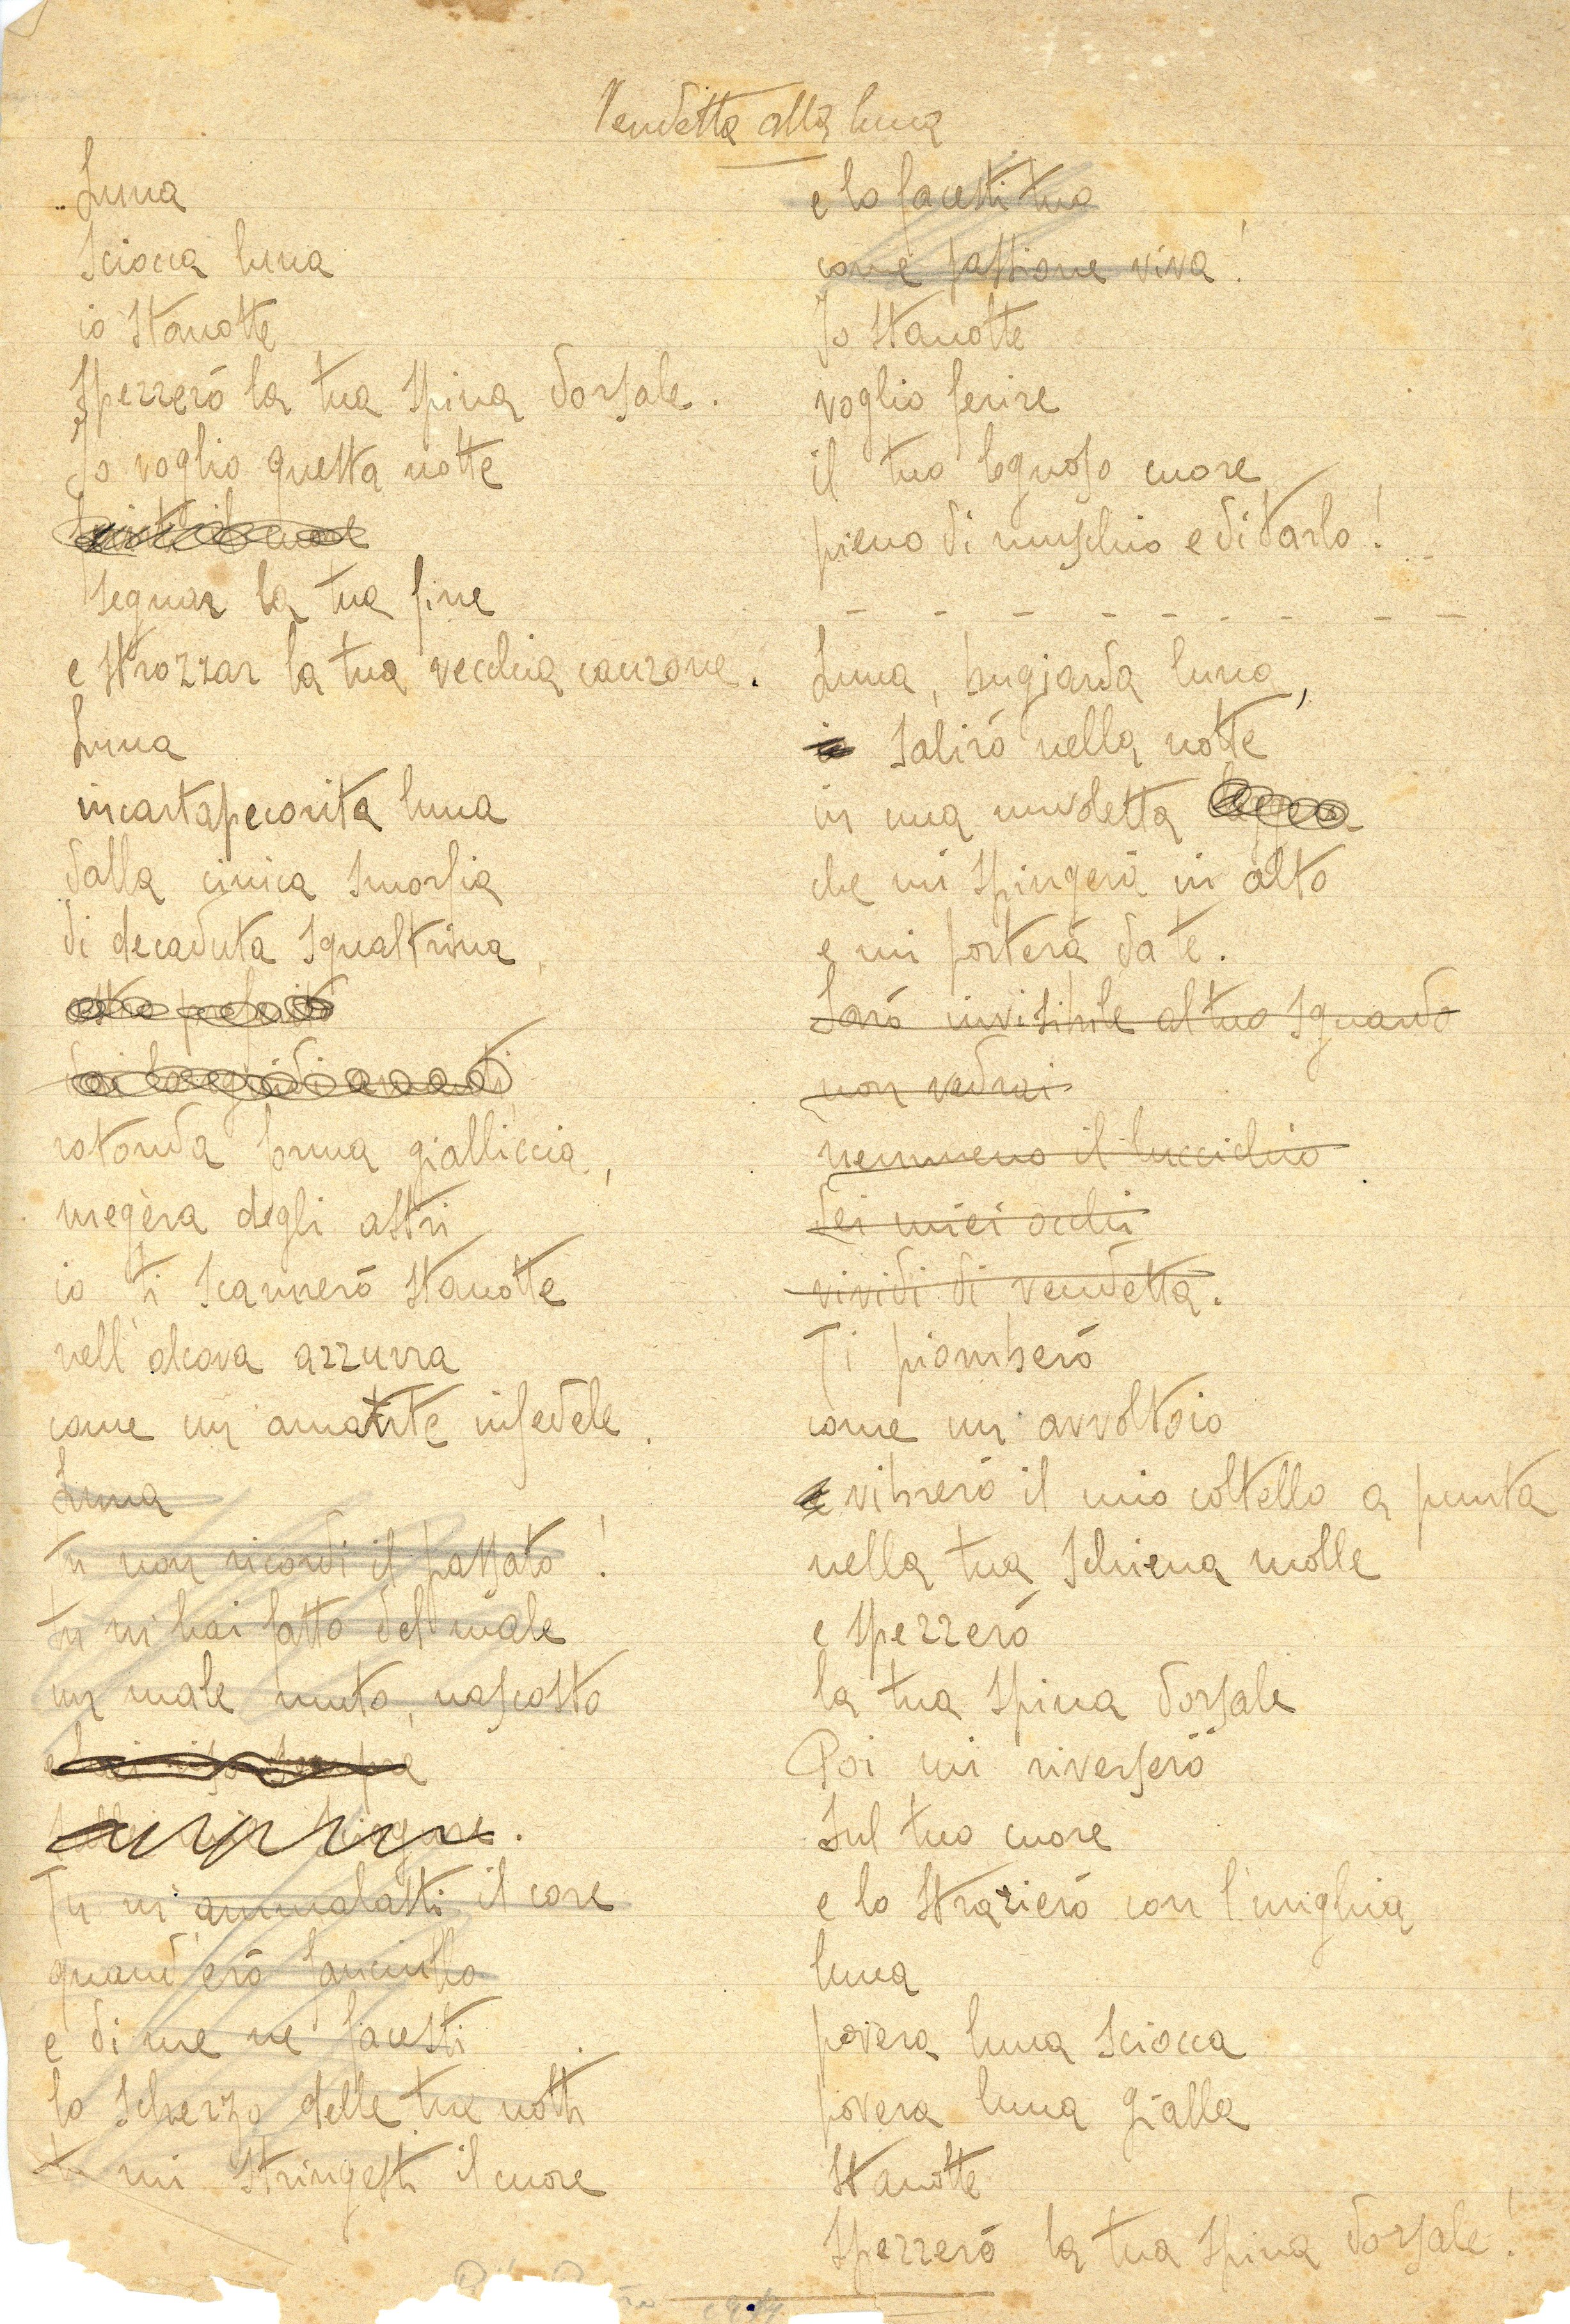 Vendetta alla luna
Luna
sciocca luna
io stanotte
spezzerò la tua spina dorsale.
Io voglio questa notte
segnar la tua fine
e strozzar la tua vecchia canzone.
Luna
incartapecorita luna
dalla cinica smorfia
di decaduta sgualtrina
rotonda forma gialliccia,
megèra degli astri
io ti scannerò stanotte
nell'alcova azzurra
come un amante infedele.
Luna
tu non ricordi il passato!
tu m'hai fatto del male
un male muto, nascosto
e hai riso sempre
Tu m'ammalasti il core
quand'ero fanciullo
e di me ne facesti
lo scherzo delle tue notti
tu mi stringesti il cuore
e lo facesti tuo
come passione viva!
Io stanotte
voglio ferire
il tuo legnoso cuore
pieno di muschio e di tarlo!
Luna, bugiarda luna,
io salirò nella notte
in una nuvoletta
che mi spingerà in alto
e mi porterà da te.
Sarò invisibile al tuo sguardo
non vedrai
nemmeno il luccichio
dei miei occhi
vividi di vendetta.
Ti piomberò
come un avvoltoio
e vibrerò il mio coltello a punta
nella tua schiena molle
e spezzerò
la tua spina dorsale
Poi mi riverserò
sul tuo cuore
e lo strazierò con l'unghia
luna
povera luna sciocca
povera luna gialla
stanotte
spezzerò la tua spina dorsale!